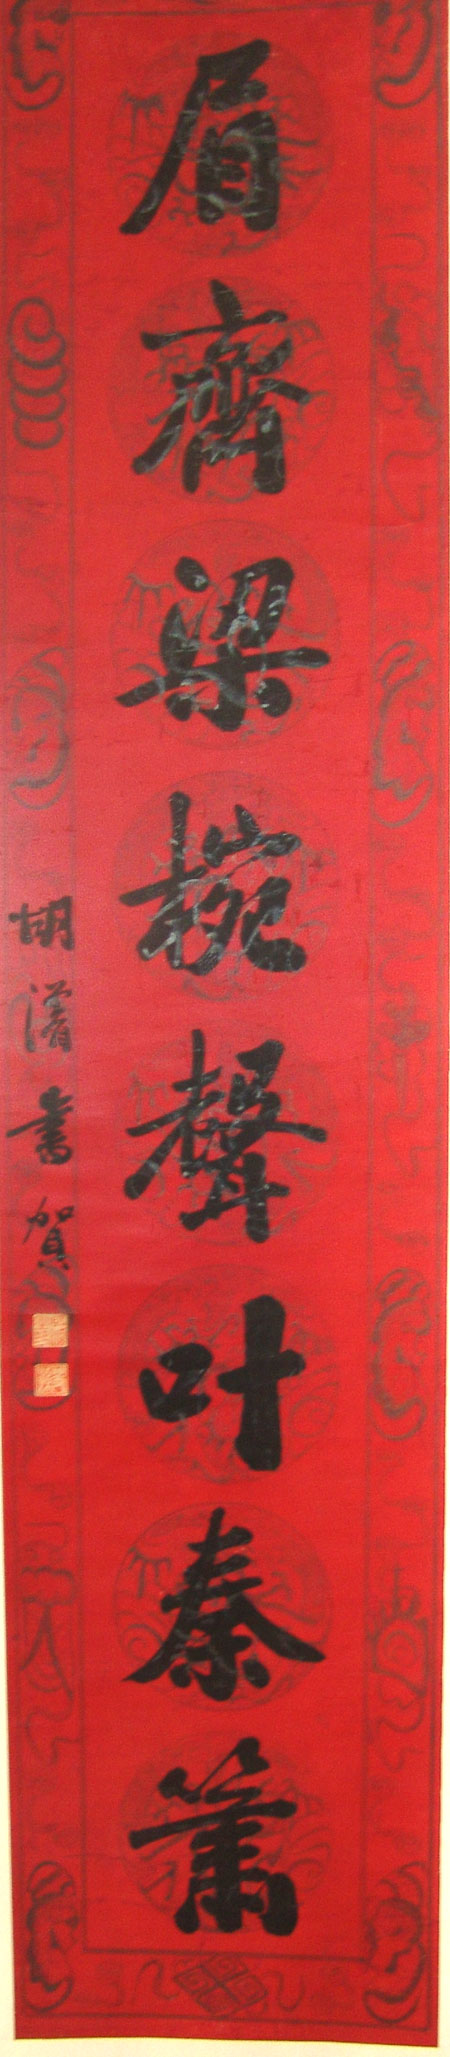 眉齊梁椀聲叶秦簫
胡濬書賀